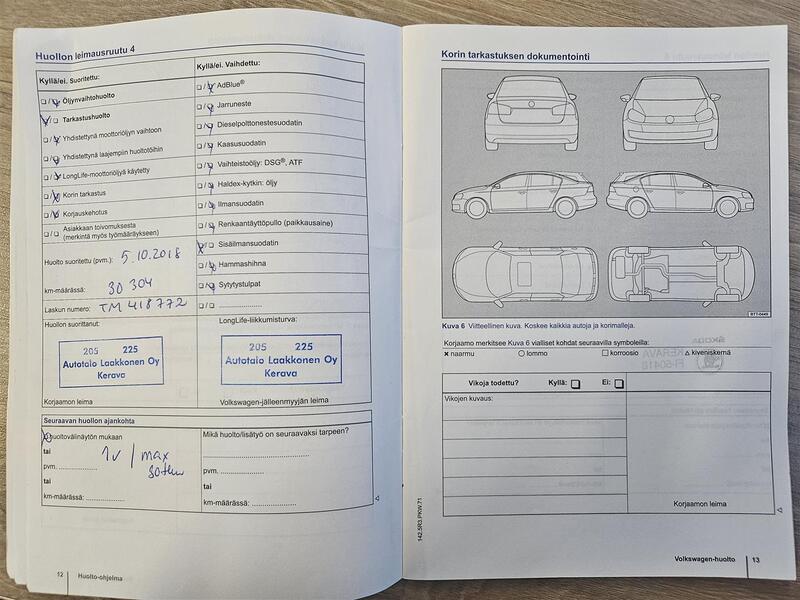 Huollon leimausruutu 4
Kyllä/ei. Suoritettu:
Öljynvaihtohuolto
Tarkastushuolto
Yhdistettynä moottoriöljyn vaihtoon
Yhdistettynä laajempiin huoltotöihin
LongLife-moottoriöljyä käytetty
Korin tarkastus
Korjauskehotus
Asiakkaan toivomuksesta
(merkintä myös työmääräykseen)
Huolto suoritettu (pvm.): 5.10.2018
km-määrässä: 30 304
Laskun numero: TM 418772
Huollon suorittanut:
205 225
Autotalo Laakkonen Oy
Kerava
Korjaamon leima
Kyllä/ei. Vaihdettu:
AdBlue®
Jarruneste
Dieselpolttonestesuodatin
Kaasusuodatin
Vaihteistoöljy: DSG®, ATF
Haldex-kytkin: öljy
Ilmansuodatin
Renkaantäyttöpullo (paikkausaine)
Sisäilmansuodatin
Hammashihna
Sytytystulpat
LongLife-liikkumisturva:
205 225
Autotalo Laakkonen Oy
Kerava
Volkswagen-jälleenmyyjän leima
Seuraavan huollon ajankohta
huoltovälinäytön mukaan
tai 1v / max
pvm. 30tkm
tai
km-määrässä:
Mikä huolto/lisätyö on seuraavaksi tarpeen?
pvm.
tai
km-määrässä:
12 Huolto-ohjelma
Korin tarkastuksen dokumentointi
BTT-0449
Kuva 6 Viitteellinen kuva. Koskee kaikkia autoja ja korimalleja.
Korjaamo merkitsee Kuva 6 vialliset kohdat seuraavilla symboleilla:
naarmu lommo korroosio kiveniskemä
Vikoja todettu? Kyllä: Ei:
Vikojen kuvaus:
Korjaamon leima
142.5R3.PKW.71
Volkswagen-huolto 13